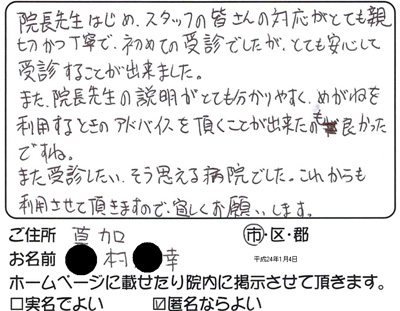 院長先生はじめ、スタッフの皆さんの対応がとても親
切かつ丁寧で、初めての受診でしたが、とても安心して
受診することが出来ました。
また、院長先生の説明がとても分かりやすく、めがねを
利用するときのアドバイスを頂くことが出来たのも良かった
ですね。
また受診したい、そう思える病院でした。これからも
利用させて頂きますので、宜しくお願いします。
ご住所 草加 市・区・郡
お名前 村 幸 平成24年1月4日
ホームページに載せたり院内に掲示させて頂きます。
□実名でよい ☑匿名ならよい